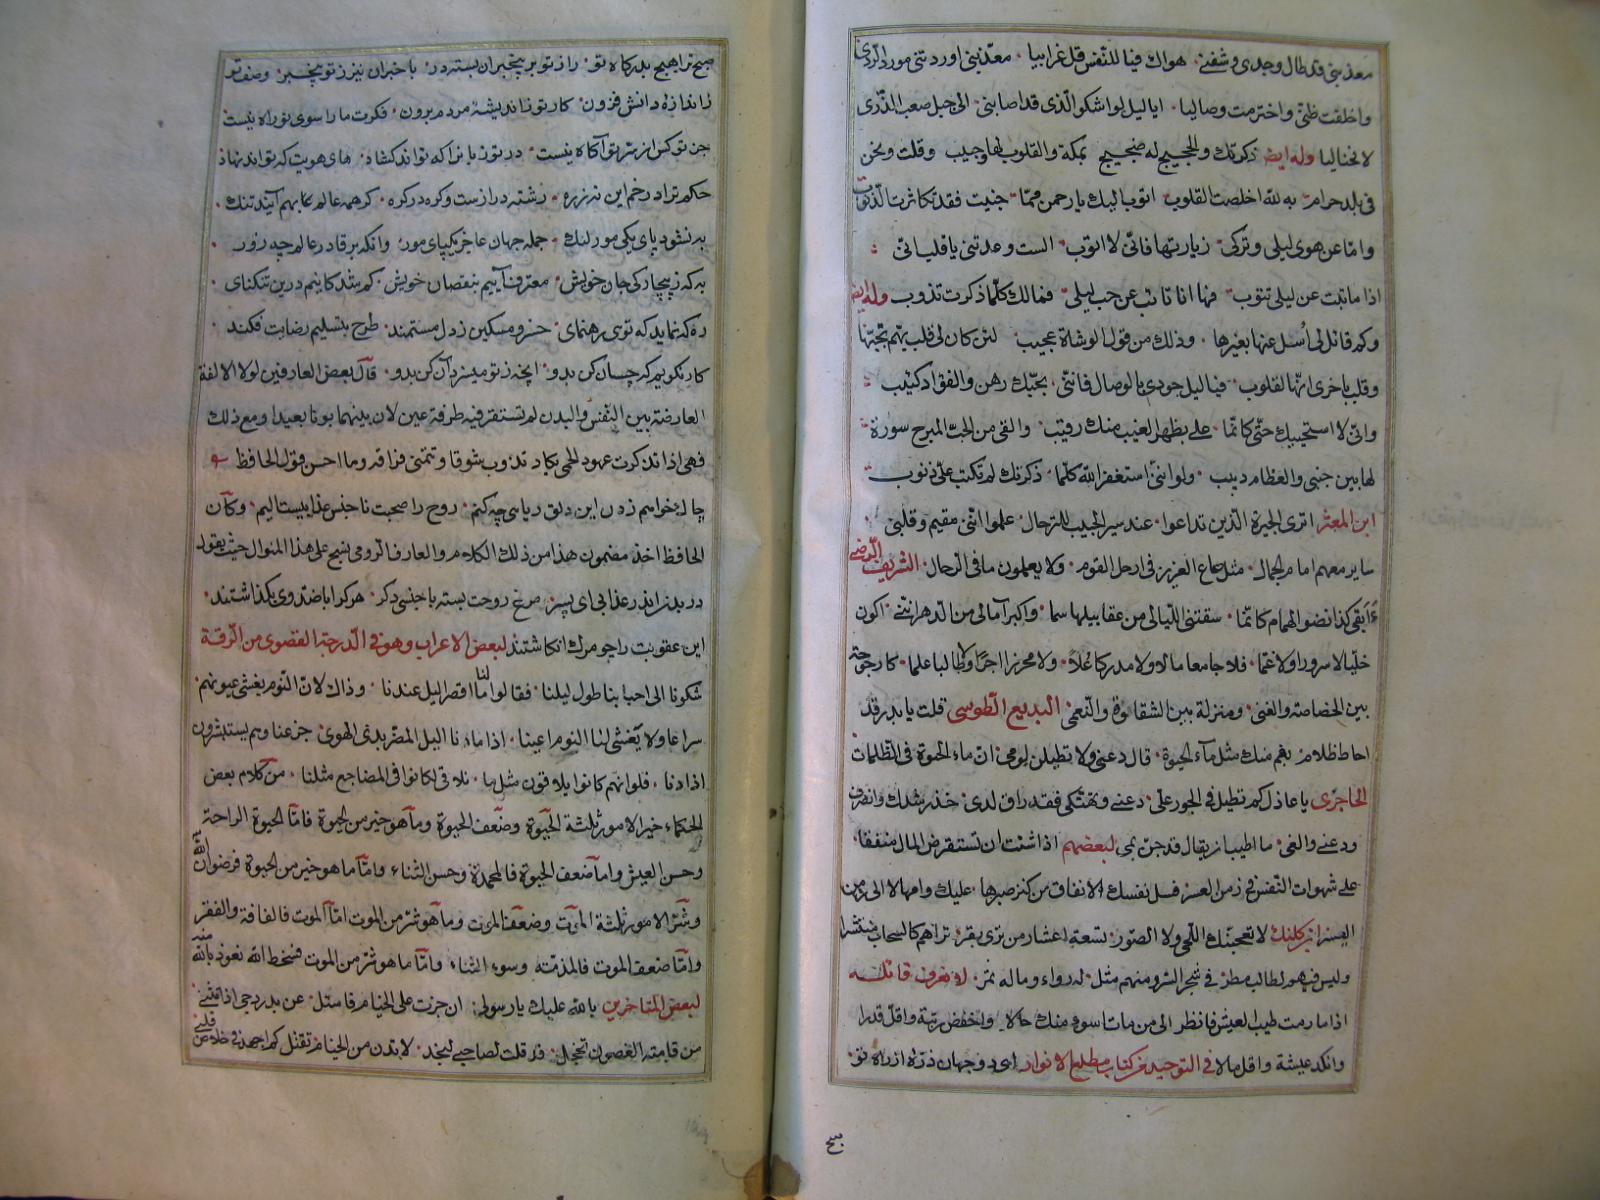 معذبتی قد طال وجدی وشفنی هواك فیا للنفس قل غرابیا معذبتی اوردتنی مورد الردی
واخلفت ظنی واخترمت وصالیا ایا لیل لو اشکو الذی قد اصابنی الی جبل صعب الذری
لانحنی لیا وله ایض ذکرتك والحجیج له ضجیج بمکة والقلوب لها وجیب وقلت ونحن
فی بلد حرام به لله اخلصت القلوب اتوب الیك یا رحمن مما جنیت فقد تکاثرت الذنوب
واما عن هوی لیلی وترکی زیارتها فانی لا اتوب الست وعدتنی یا قلب انی
اذا ما تبت عن لیلی تتوب فها انا تائب عن حب لیلی فمالك کلما ذکرت تذوب وله ایض
وکم قائل لی اسل عنها بغیرها وذلك من قول الوشاة عجیب لئن کان لی قلب یهم بحبها
وقلب باخری انها لقلوب فیا لیل جودی بالوصال فاننی بحبك رهن والفؤاد کئیب
وانی لا استحییك حتی کانما علی بظهر الغیب منك رقیب والقی من الحب المبرح سورة
لها بین جنبی والعظام دبیب ولو اننی استغفر الله کلما ذکرتك لم تکتب علی ذنوب
ابن المعتز اتری الجیرة الذین تداعوا عند سیر الحبیب للترحال علموا اننی مقیم وقلبی
سایر معهم امام الجمال مثل صاع العزیز فی ارحل القوم ولا یعلمون ما فی الرحال الشریف الرضی
ءابقی کذا نضو الهمام کانما سقتنی اللیالی من عقابیلها سما واکبر آمالی من الدهر اننی اکون
خلیا لا سرورا ولا غما فلا جامعا مالا ولا مدرکا علا ولا محرزا اجرا ولا طالبا علما کارجوحة
بین الخصاصة والغنی ومنزلة بین الشقاوة والنعمی البدیع الطوسی قلت یا بدر قد
احاط ظلام بفم منك مثل ماء الحیوة قال دعنی ولا تطیلن لومی ان ماء الحیوة فی الظلمات
الحاجری یا عاذل کم تطیل فی الجور علی دعنی وتهتکی فقد راق لدی خذ رشدك وانصرف
ودعنی والغی ما اطیب ان یقال قد جن بمی لبعضهم اذا شئت ان تستقرض المال منفقا
علی شهوات النفس فی زمن العسر فسل نفسك الانفاق من کنز صبرها علیك وامهالا الی زمن
الیسر ابن کلنك لا تعجبنك اللحی ولا الصور تسعة اعشار من تری بقر تراهم کالسحاب منتشرا
ولیس فیهم لطالب مطر فی شجر السرو منهم مثل له رواء وما له ثمر لا نعرف قائله
اذا ما رمت طیب العیش فانظر الی من مات اسوء منك حالا واخفض رتبة واقل قدرا
وانکد عیشة واقل مالا فی التوحید من کتاب مطلع الانوار ای دو جهان ذره از راه تو
هیچ تر از هیچ بدرگاه تو راز تو بر بیخبران بسته در با خبران نیز ز تو بیخبر وصف تو
ز اندازه دانش فزون کار تو ز اندیشهٔ مردم برون فکرت ما را سوی تو راه نیست
جز تو کس از سر تو آگاه نیست در تو زبانرا که تواند گشاد های هویت که تواند نهاد
حکم ترا در خم این نه زره رشته دراز ست و گره در گره گر همه عالم بهم آیند تنگ
به نشود پای یکی مور لنگ جمله جهان عاجز یکپای مور وانکه بر قادر عالم چه زور
به که ز بیچارگی جان خویش معترف آییم بنقصان خویش گم شد گانیم درین تنگنای
ره که نماید که توی رهنمای خسرو مسکین ز دل مستمند طرح بتسلیم رضایت فکند
کار نگویم که چسان کن بدو انچه ز تو میسزد آن کن بدو قال بعض العارفین لولا الالفة
العارضة بین النفس والبدن لم تستقر فیه طرفة عین لان بینهما بونا بعیدا ومع ذلك
فهی اذا تذکرت عهود الحمی یکاد تذوب شوقا وتتمنی فراقه وما احسن قول الحافظ
جا لیخواهم زدن این دلق ریایی چه کنم روح را صحبت ناجنس عذابیست الیم وکان
الحافظ اخذ مضمون هذا من ذلك الکلام والعارف الرومی نسج علی هذا المنوال حیث یقول
در بدن اندر عذابی ای پسر مرغ روحت بسته با جنسی دگر هر کرا با ضد وی بگذاشتند
این عقوبت را چو مرگ انگاشتند لبعض الاعراب وهو فی الدرجة القصوی من الرقة
شکونا الی احبابنا طول لیلنا فقالوا لنا ما اقصر اللیل عندنا وذاك لان النوم یغشی عیونهم
سراعا ولا یغشی لنا النوم اعینا اذا ما دنا اللیل المضر بذی الهوی جزعنا وهم یستبشرون
اذا دنا فلو انهم کانوا یلاقون مثل ما نلاقی لکانوا فی المضاجع مثلنا من کلام بعض
الحکماء خیر الامور ثلثة الحیوة وضعف الحیوة وما هو خیر من الحیوة فاما الحیوة الراحة
وحسن العیش واما ضعف الحیوة فالمحمدة وحسن الثناء واما ما هو خیر من الحیوة فرضوان الله
وشر الامور ثلثة الموت وضعف الموت وما هو شر من الموت اما الموت فالفاقة والفقر
واما ضعف الموت فالمذمة وسوء الثناء واما ما هو شر من الموت فسخط الله نعوذ بالله منه
لبعض المتاخرین بالله علیك یا رسولی ان جزت علی الخیام فاسئل عن بدر دجی اذا تثنی
من قامته الغصون تخجل قد قلت لصاحبی لنجد لا تدن من الخیام تقتل کم اجهد فی خلاص قلبی